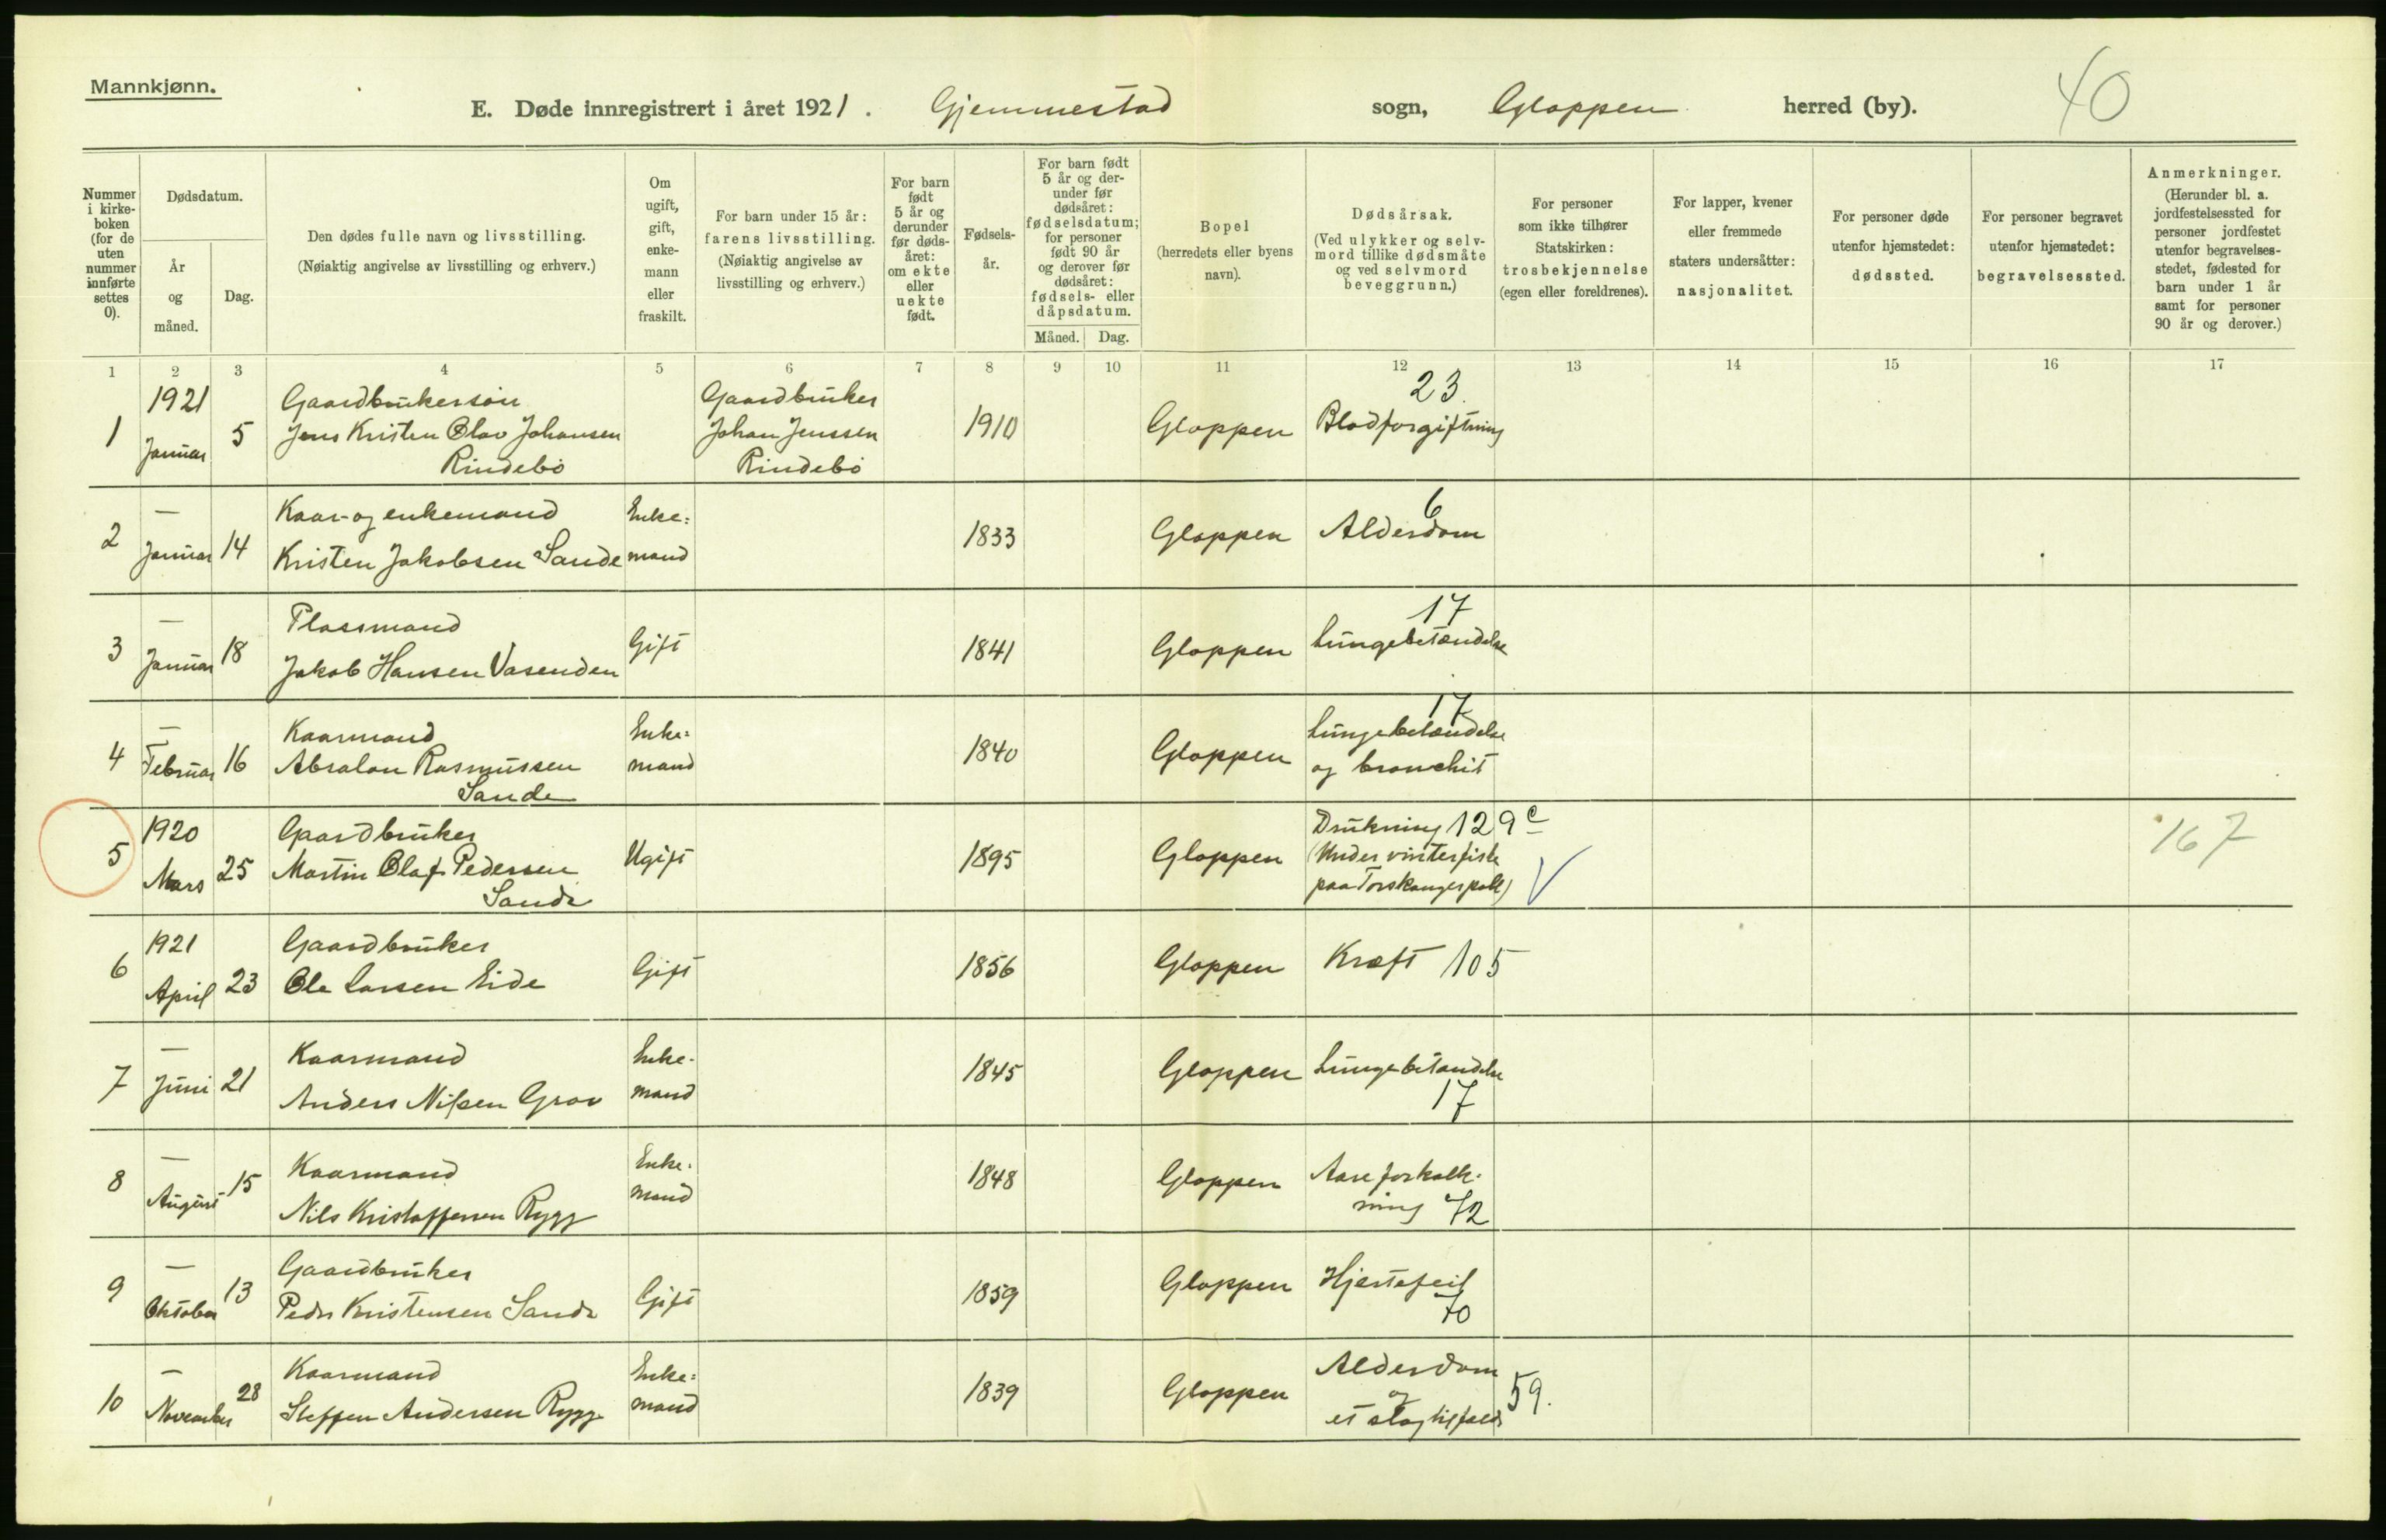 Mannkjønn.
E. Døde innregistrert i året 1921. Gjemmestad sogn, Gloppen herred (by). 40
Nummer i kirkeboken (for de uten nummer innførte settes 0).
Dødsdatum.
År og måned.
Dag.
Den dødes fulle navn og livsstilling.
(Nøiaktig angivelse av livsstilling og erhverv.)
Om ugift, gift, enkemann eller fraskilt.
For barn under 15 år: farens livsstilling.
(Nøiaktig angivelse av livsstilling og erhverv.)
For barn født 5 år og derunder før dødsåret: om ekte eller uekte født.
Fødselsår.
For barn født 5 år og derunder før dødsåret: fødselsdatum; for personer født 90 år og derover før dødsåret: fødsels- eller dåpsdatum.
Måned. Dag.
Bopel
(herredets eller byens navn).
Dødsårsak.
(Ved ulykker og selvmord tillike dødsmåte og ved selvmord beveggrunn.)
For personer som ikke tilhører Statskirken: trosbekjennelse (egen eller foreldrenes).
For lapper, kvener eller fremmede staters undersåtter: nasjonalitet.
For personer døde utenfor hjemstedet: dødssted.
For personer begravet utenfor hjemstedet: begravelsessted.
Anmerkninger.
(Herunder bl. a. jordfestelsessted for personer jordfestet utenfor begravelsesstedet, fødested for barn under 1 år samt for personer 90 år og derover.)
1 2 3 4 5 6 7 8 9 10 11 12 13 14 15 16 17
1 1921 Januar 5 Gaardbrukersøn Jens Kristen Olav Johansen Rindebø Gaardbruker Johan Jenssen Rindebø 1910 Gloppen Blodforgiftning 23
2 — Januar 14 Kaar- og enkemand Kristen Jakobsen Sande Enke=mand 1833 Gloppen Alderdom 6
3 — Januar 18 Plassmand Jakob Hansen Vasenden Gift 1841 Gloppen Lungebetændelse 17
4 — Februar 16 Kaarmand Absalon Rasmussen Sande Enke=mand 1840 Gloppen Lungebetændelse og bronchit 17
5 1920 Mars 25 Gaardbruker Martin Olaf Pedersen Sande Ugift 1895 Gloppen Drukning 129c (Under vinterfiske paa Torskanger) V 167
6 1921 April 23 Gaardbruker Ole Larsen Eide Gift 1856 Gloppen Kræft 105
7 — Juni 21 Kaarmand Anders Nilsen Grov Enke-mand 1845 Gloppen Lungebetændelse 17
8 — August 15 Kaarmand Nils Kristoffersen Rygg Enke-mand 1848 Gloppen Aareforkalk-ning 72
9 — Oktober 13 Gaardbruker Peder Kristensen Sande Gift 1859 Gloppen Hjertefeil 70
10 — November 28 Kaarmand Steffen Andersen Rygg Enke=mand 1839 Gloppen Alderdom og et slagtilfælde 59.